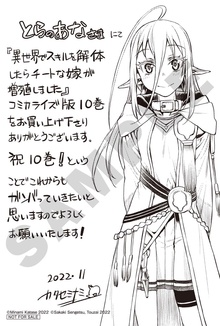 とらのあなさまにて
『異世界でスキルを解体
したらチートな嫁が
増殖しました』
コミカライズ版10巻
をお買い上げ下さり
ありがとうございます。
祝10巻!という
ことでこれからも
ガンバっていきたいと
思いますのでよろしく
お願いいたします!
2022.11
カタセミナミ
SAMPLE
©Minami Katase 2022 ©Sakaki Sengetsu, Touzai 2022
NOT FOR SALE